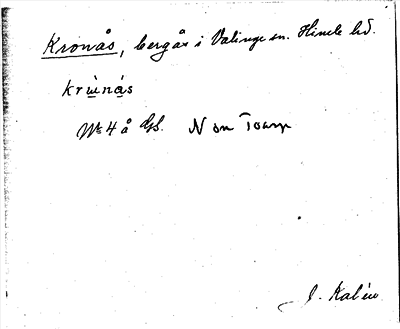 Kronås, bergås i Valinge sn. Himle hd.
krùnás
No 4 å Gs. N om Torup
J. Kalén